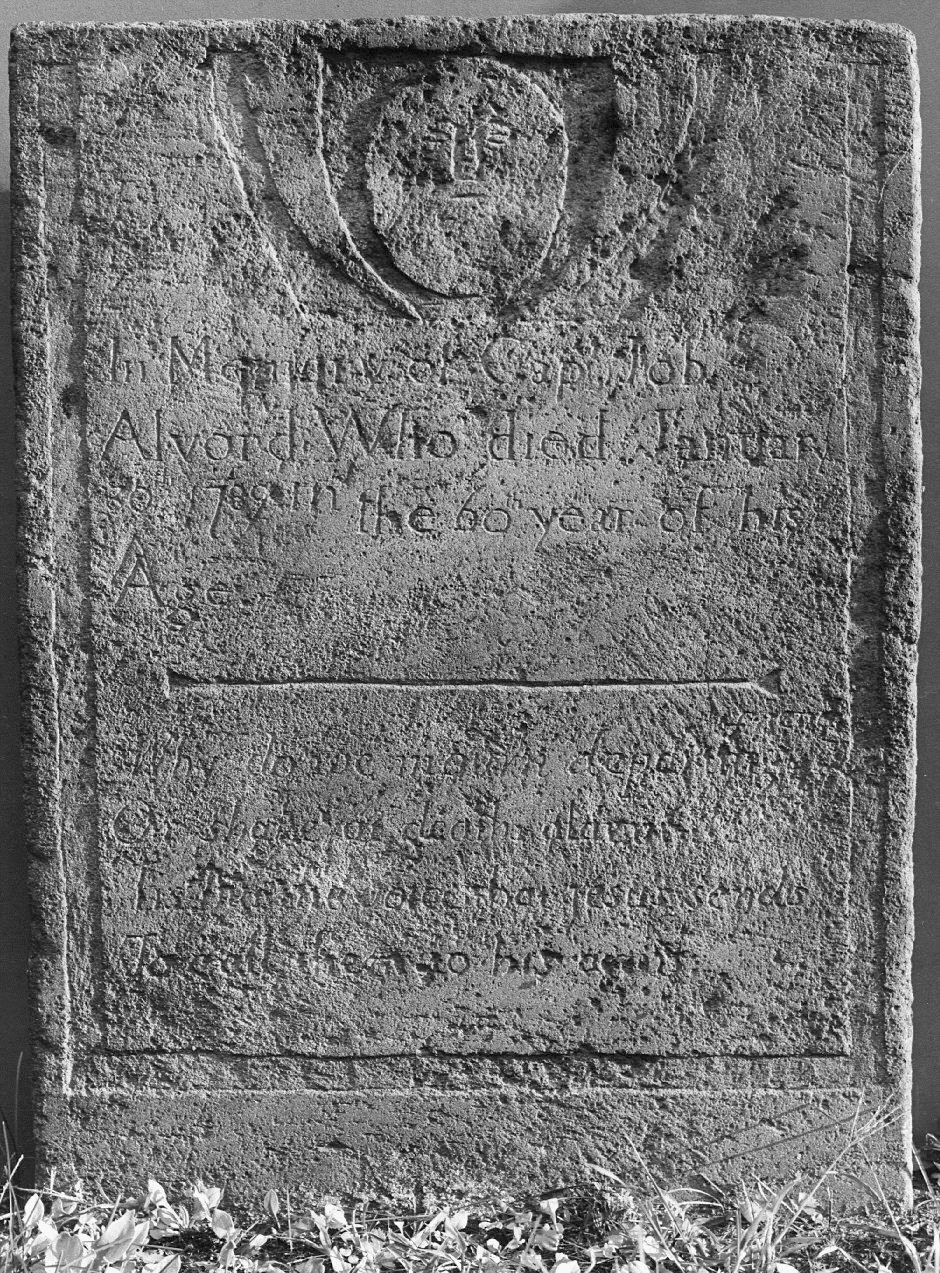 In Memory of Cap.t Job
Alvord Who died Januar
30th 1789 in the 60 year of his
Age.
Why do we mourn departing friends
Or shake at death, alarms
Tis but the voice that jesus sends
To call them to his arms